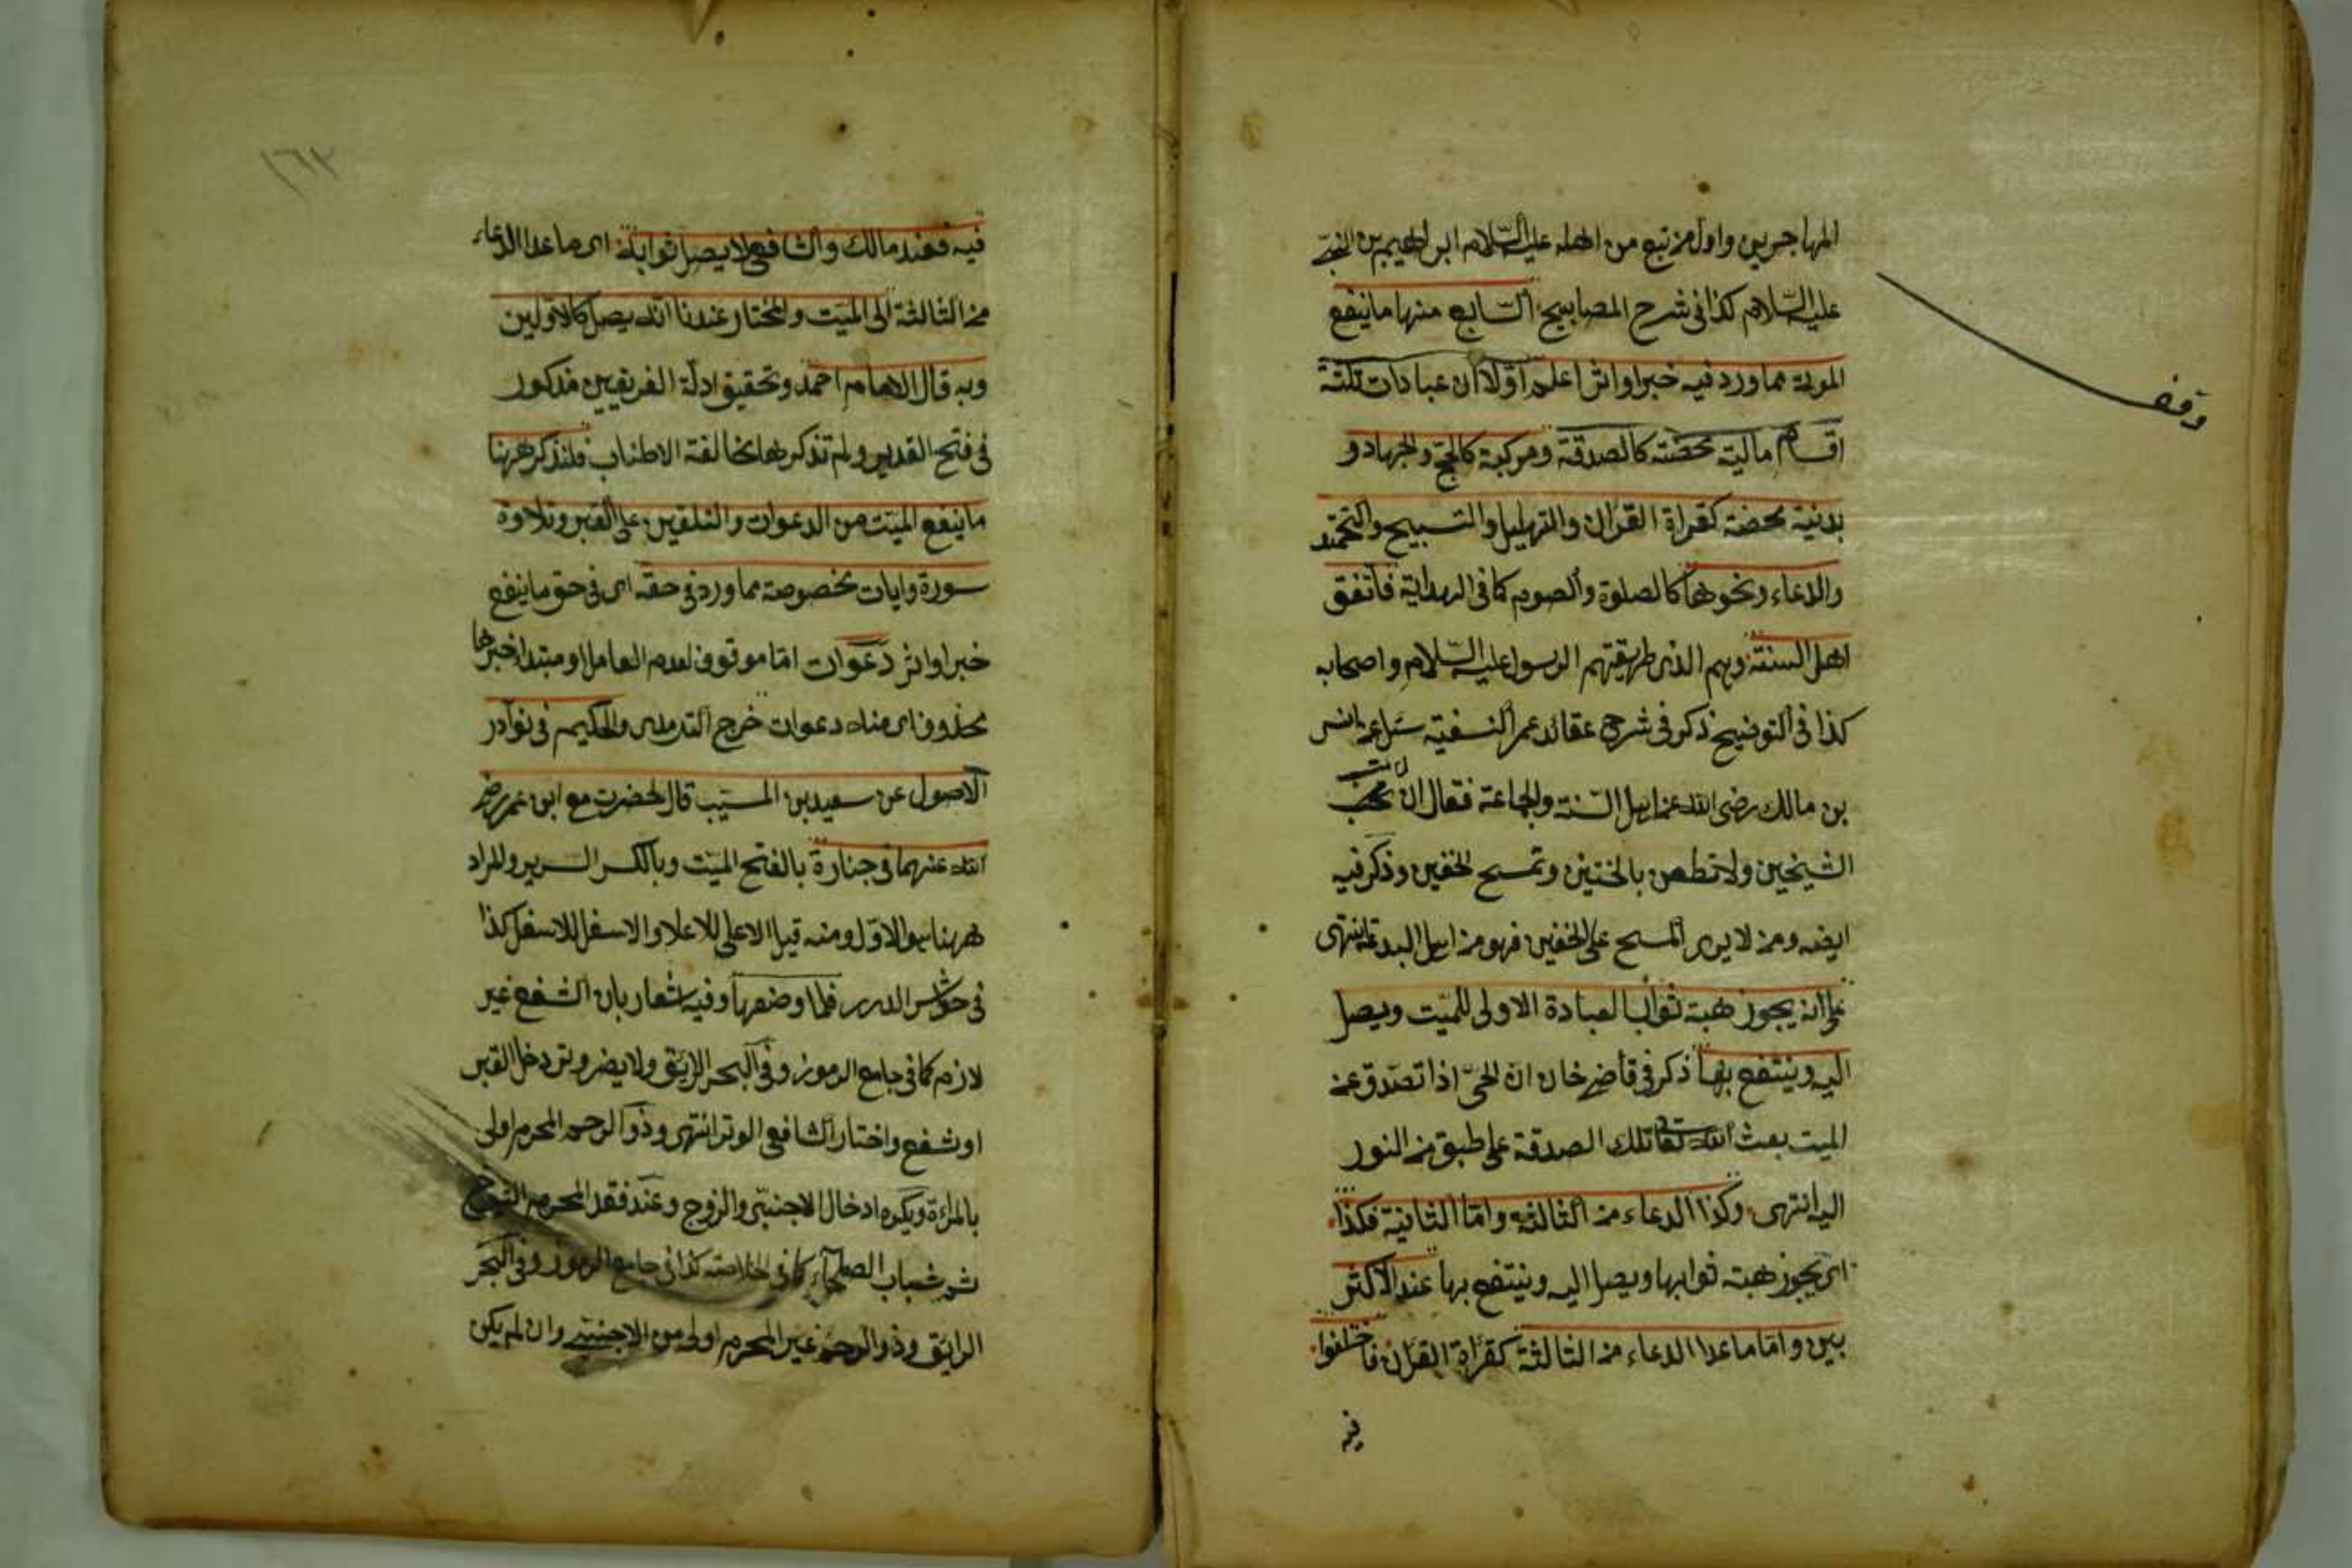 المهاجرين واول من تبع من اهله عليه السلام ابراهيم بن النبي
عليه السلام كذا فى شرح المصابيح السابع منها ما ينفع
الموتى مما ورد فيه خبر او اثر اعلم اولا ان عبادات ثلثة
اقسام مالية محضة كالصدقة ومركبة كالحج والجهاد و
بدنية محضة كقراة القران والتهليل والتسبيح والتحميد
والدعاء ونحوها كالصلوة والصوم كما فى الهداية فاتفق
اهل السنة وهم الذى طريقتهم الرسول عليه السلام واصحابه
كذا فى التوضيح ذكر فى شرح عقائد عمر النسفية سئل عن انس
بن مالك رضى الله عنه اهل السنة والجماعة فقال ان تحب
الشيخين ولا تطعن بالختنين وتمسح الخفين وذكر فيه
ايضه ومن لا يرى المسح على الخفين فهو من اهل البدعة انتهى
على انه يجوز هبة ثواب العبادة الاولى للميت ويصل
اليه وينتفع بها ذكر فى قاضى خان ان الحى اذا تصدق عن
الميت بعث الله تعا تلك الصدقة على طبق من النور
اليه انتهى وكذا الدعاء من الثالثة واما الثانية فكذا
اى يجوز هبة ثوابها ويصل اليه وينتفع بها عند الاكثر
ين واما ما عدا الدعاء من الثالثة كقراة القران فاختلفوا
فيه
وقف
١٦٣
فيه فعند مالك والشافعى لا يصل ثوابه اى ما عدا الدعاء
من الثالثة الى الميت والمختار عندنا انه يصل كالاولين
وبه قال الامام احمد وتحقيق ادلة الفريقين مذكور
فى فتح القدير ولم تذكرها لمخالفة الاطناب فلنذكر ههنا
ما ينفع الميت من الدعوات والتلقين على القبر وتلاوة
سورة وايات مخصوصة مما ورد فى حقه اى فى حق ما ينفع
خبر او اثر دعوات اما موقوف لعدم العامل او مبتدا خبرها
محذوف اى منه دعوات خرج الترمذى والحكيم فى نوادر
الاصول عن سعيد بن المسيب قال حضرت مع ابن عمر رضى
الله عنهما فى جنازة بالفتح الميت وبالكسر السرير والمراد
ههنا هو الاول ومنه قيل الاعلى للاعلا والاسفل للاسفل كذا
فى حواشى الدرر فلما وضعها وفيه اشعار بان الشفع غير
لازم كما فى جامع الرموز وفى البحر الرايق ولا يضر وتر دخل القبر
او شفع واختار الشافعى الوتر انتهى وذو الرحم المحرم اولى
بالمراة ويكره ادخال الاجنبى والزوج وعند فقد المحرم الشيوخ
ثم شباب الصلحاء كما فى الخلاصة كذا فى جامع الرموز وفى البحر
الرايق وذو الرحم غير المحرم اولى من الاجنبى وان لم يكن